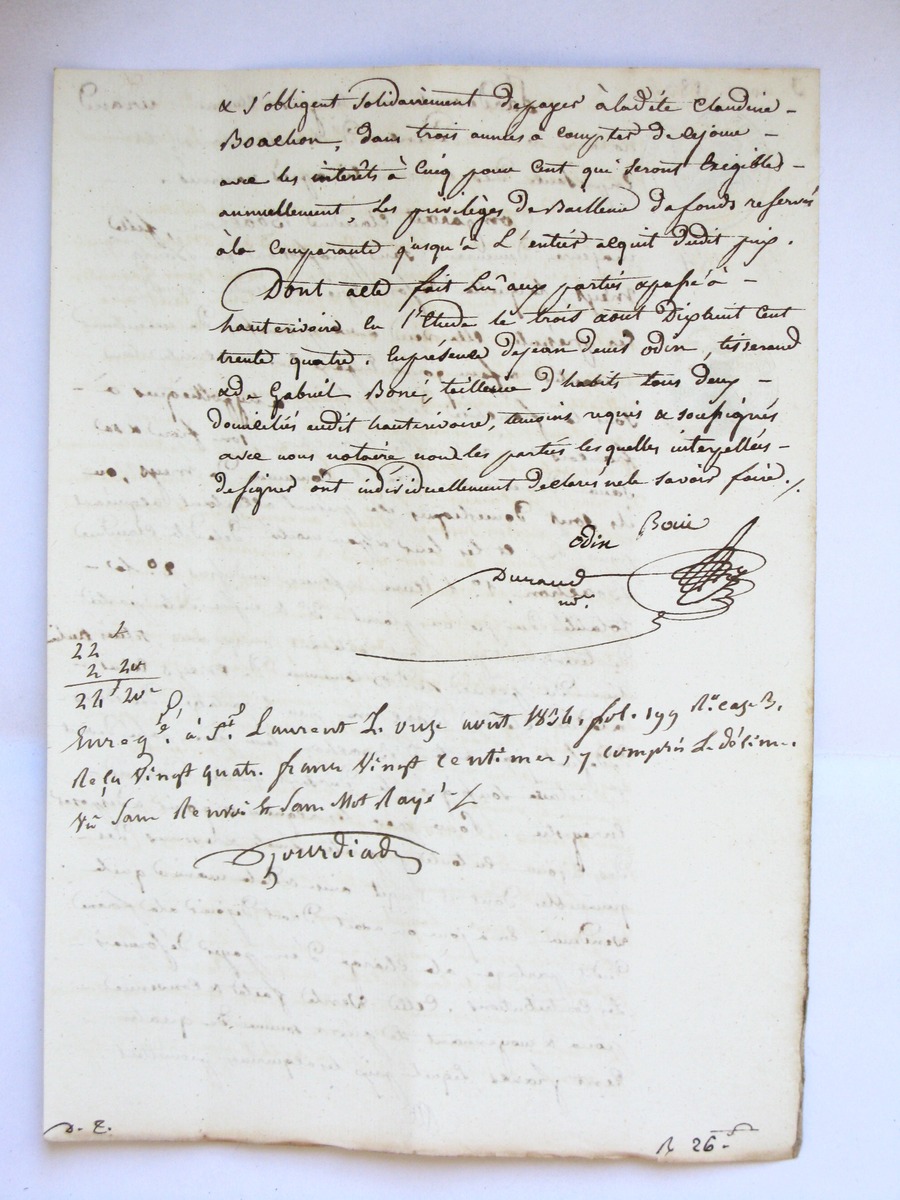 & s'obligent solidairement de payer à ladte Claudine -
Boachon, dans trois années a compter de ce jour -
avec les interêts à Cinq pour Cent qui seront Exigibles -
annuellement, Les privilèges de Bailleur de fonds reservés
à la comparante jusqu'à L'entier acquit dudit prix.
Dont acte fait Lu aux parties & passé à -
hauterivoire En l'Etude le trois aout Dix huit Cent
trente quatre. En présence de jean denis Odin, tisserand
& de Gabriel Boné, tailleur d'habits tous deux -
domiciliés audit hauterivoire, temoins requis & soussignés
avec nous notaire non les parties lesquelles interpellées -
de signer ont individuellement declarés ne le savoir faire./.
Odin
Durand
nre.
22 f
2 20
24 f 20c
Enregé. à St. Laurent Le onze août 1834. fol. 199 Ro. case 3.
Reçu Vingt quatre francs Vingt centimes, y compris Le décime.
Sans Renvoi Et Sans Mot Rayé
D. E.
R 26 f